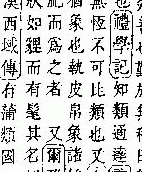 也禮學記知類通達
無恆不可比類也又
猶象也執皮帛象諸
祀而為之者又爾
狀如貍而有髦其名
漢西域傳有蒲類國